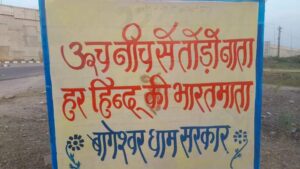 ऊच नीच से तोड़ों नाता
हर हिन्दू की भारतमाता
बागेश्वर धाम सरकार